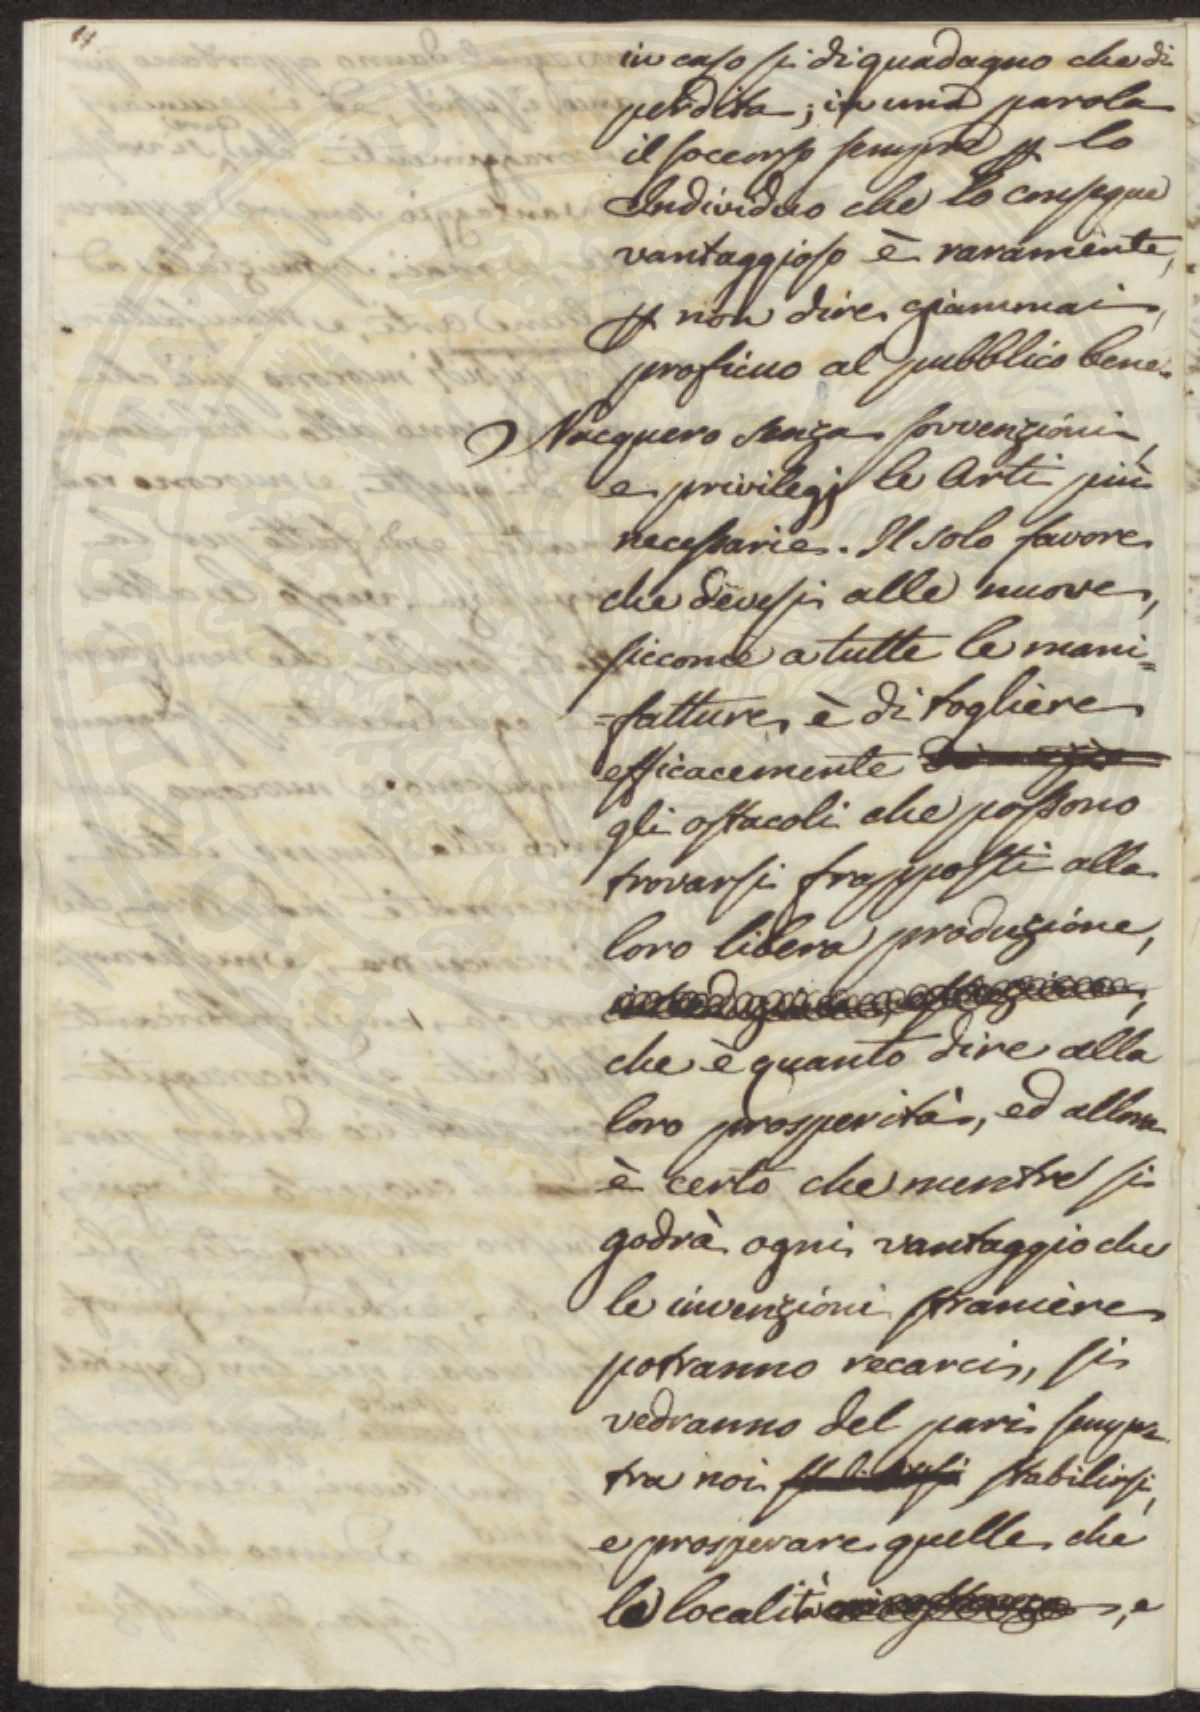 14
in caso si di guadagno che di
perdita; in una parola
il soccorso sempre p lo
Individuo che lo consegue
vantaggioso è raramente,
p non dire giammai,
proficuo al pubblico bene.
Nacquero senza sovvenzioni,
e privilegj le Arti più
necessarie. Il solo favore
che devesi alle nuove,
siccome a tutte le mani=
=fatture, è di togliere
efficacemente
gli ostacoli che possono
trovarsi frapposti alla
loro libera produzione,
che è quanto dire alla
loro prosperità, ed allora
è certo che mentre si
godrà ogni vantaggio che
le invenzioni straniere
potranno recarci, si
vedranno del pari sempre
tra noi stabilirsi,
e prosperare quelle che
le località, e